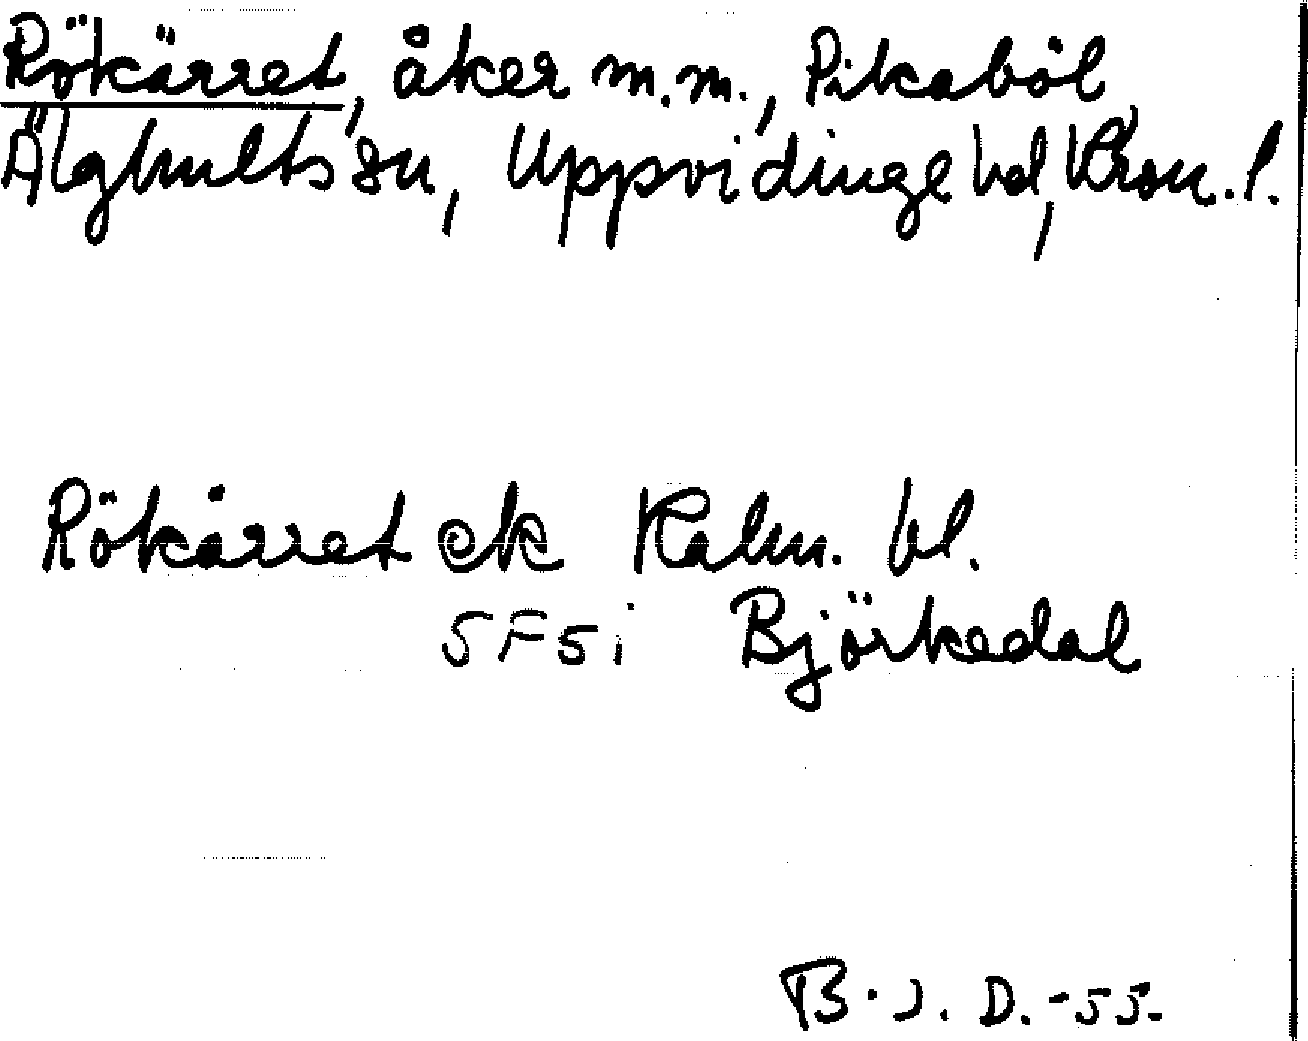 Rökärret, åker m.m., Pikaböl,
Älghults sn, Uppvidinge hd, Kron. l.
Rökärret ek Kalm. bl.
5F5i Björkedal
B.J.D. -55.